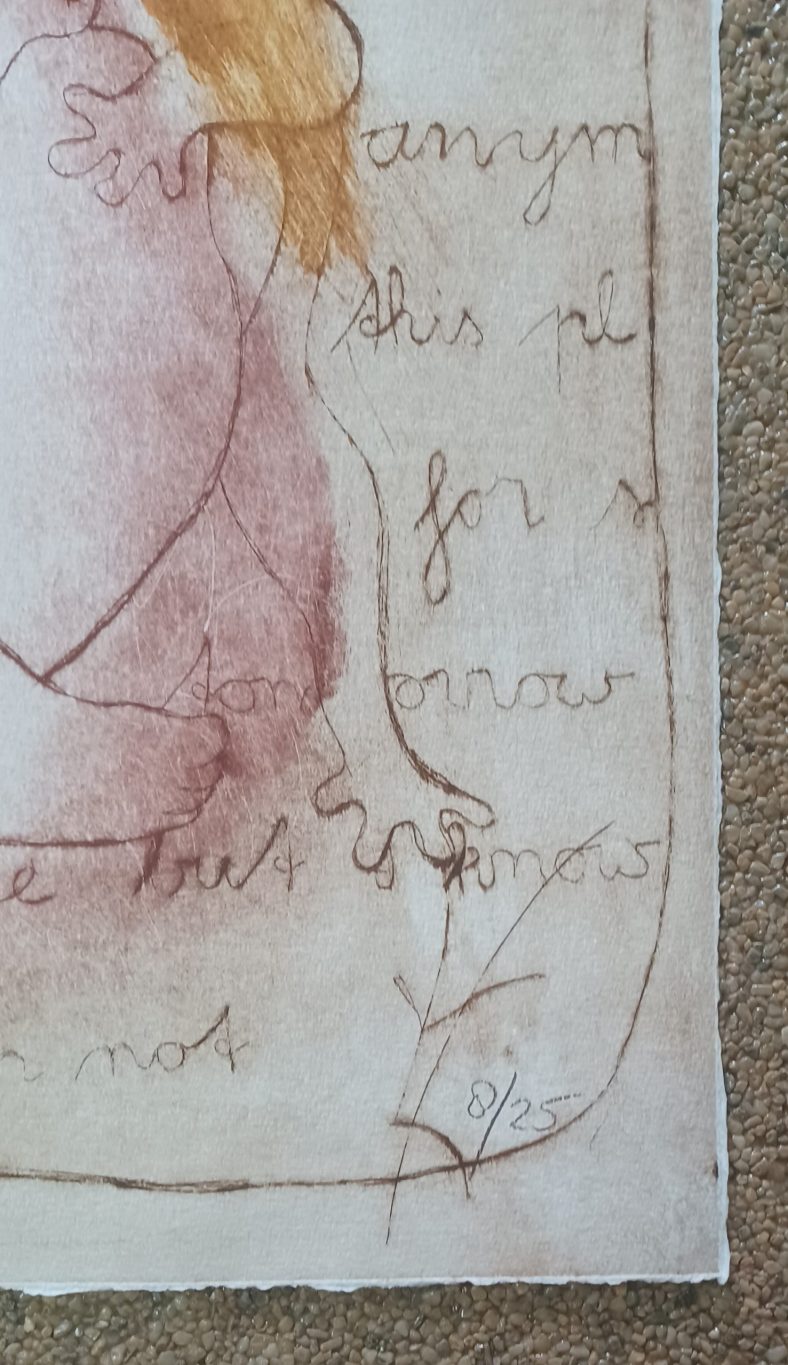 anym
this pl
for s
tom orrow
e but I know
not
8/25